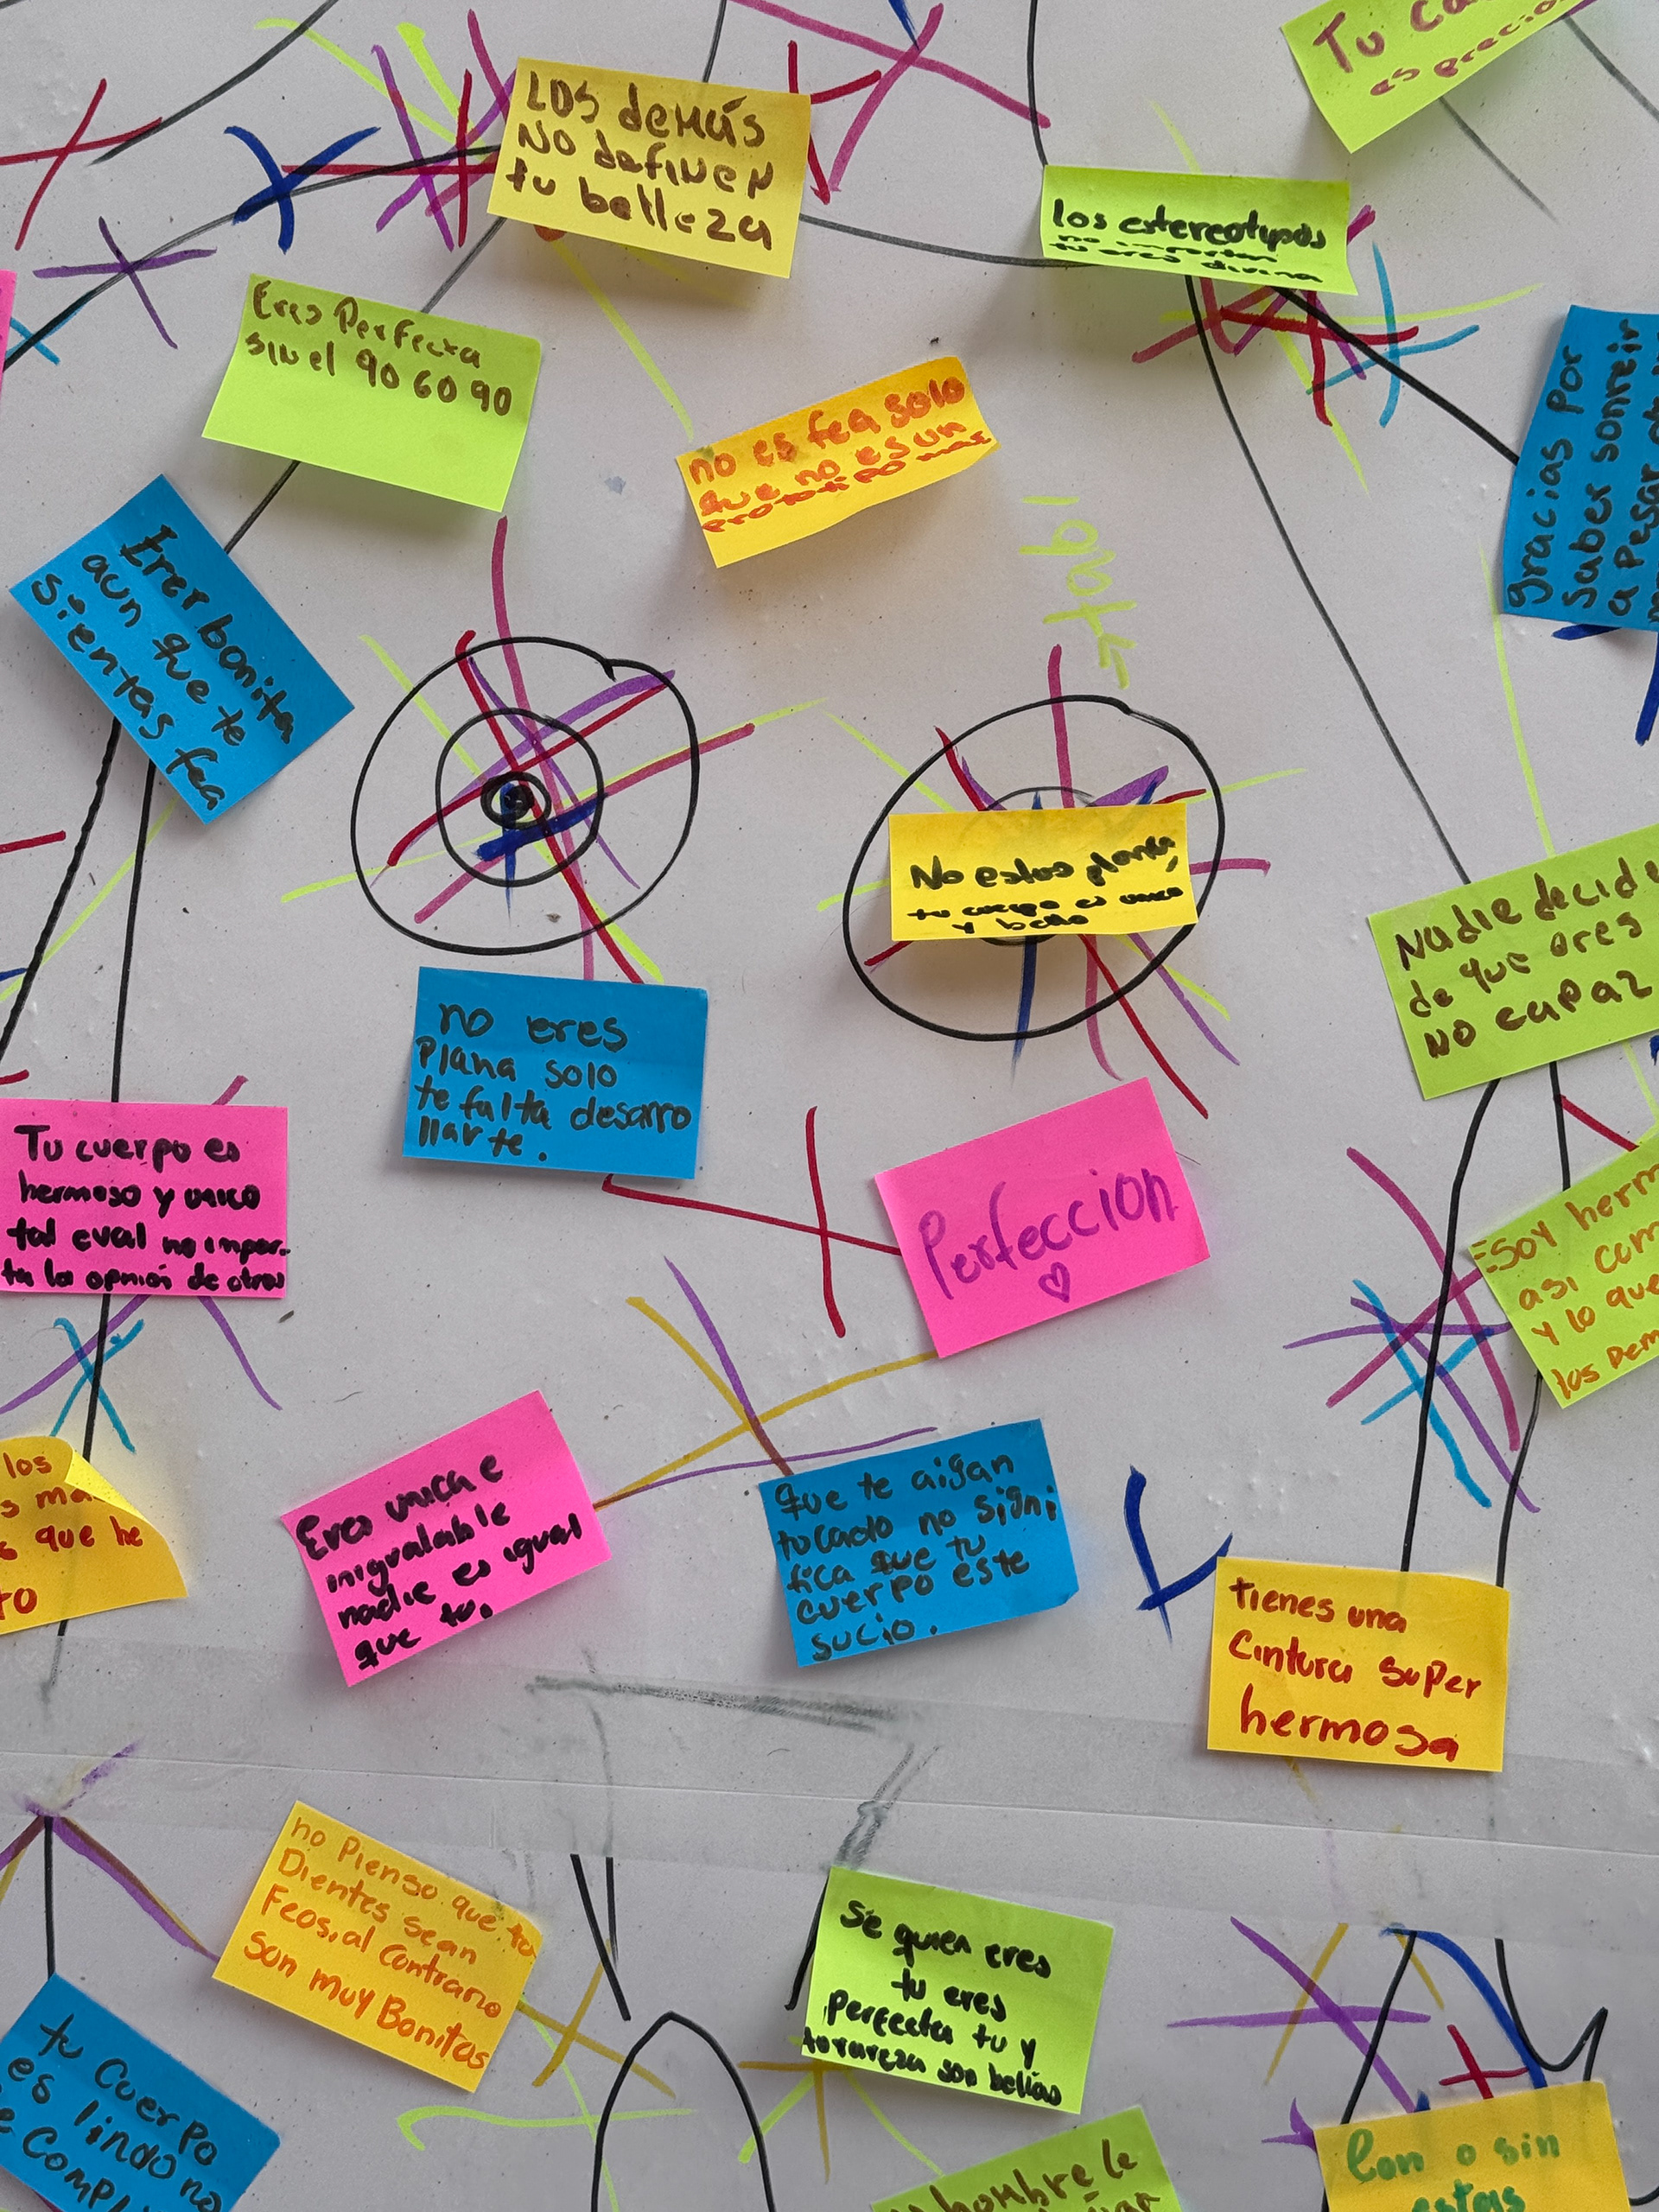 Tu
es
LOS demás
NO definen
tu belleza
los estereotipos
no importan
tu eres divina
Eres Perfecta
sin el 90 60 90
no es fea solo
que no es un
prototipo mas
gracias por
saber sonreir
a pesar
Erer bonita
aun que te
sientas fea
No estas plana,
tu cuerpo es unico
y bello
Nadie decid
de que eres
NO capaz
no eres
plana solo
te falta desarro
llar te.
Tu cuerpo es
hermoso y unico
tal cual no impor-
ta la opnión de otros
Perfeccion
ESoy herm
asi com
y lo que
los Dem
los
s ma
s que he
to
Eres unica e
inigualable
nadie es igual
que tu.
que te aigan
tocado no signi
fica que tu
cuerpo este
sucio.
tienes una
Cintura super
hermosa
no Pienso que tu
Dientes sean
Feos, al contrario
son muy Bonitos
Se quien eres
tu eres
perfecta tu y
tu rareza son bellas
tu Cuerpo
es lindo no
hombre le
Con o sin
estas